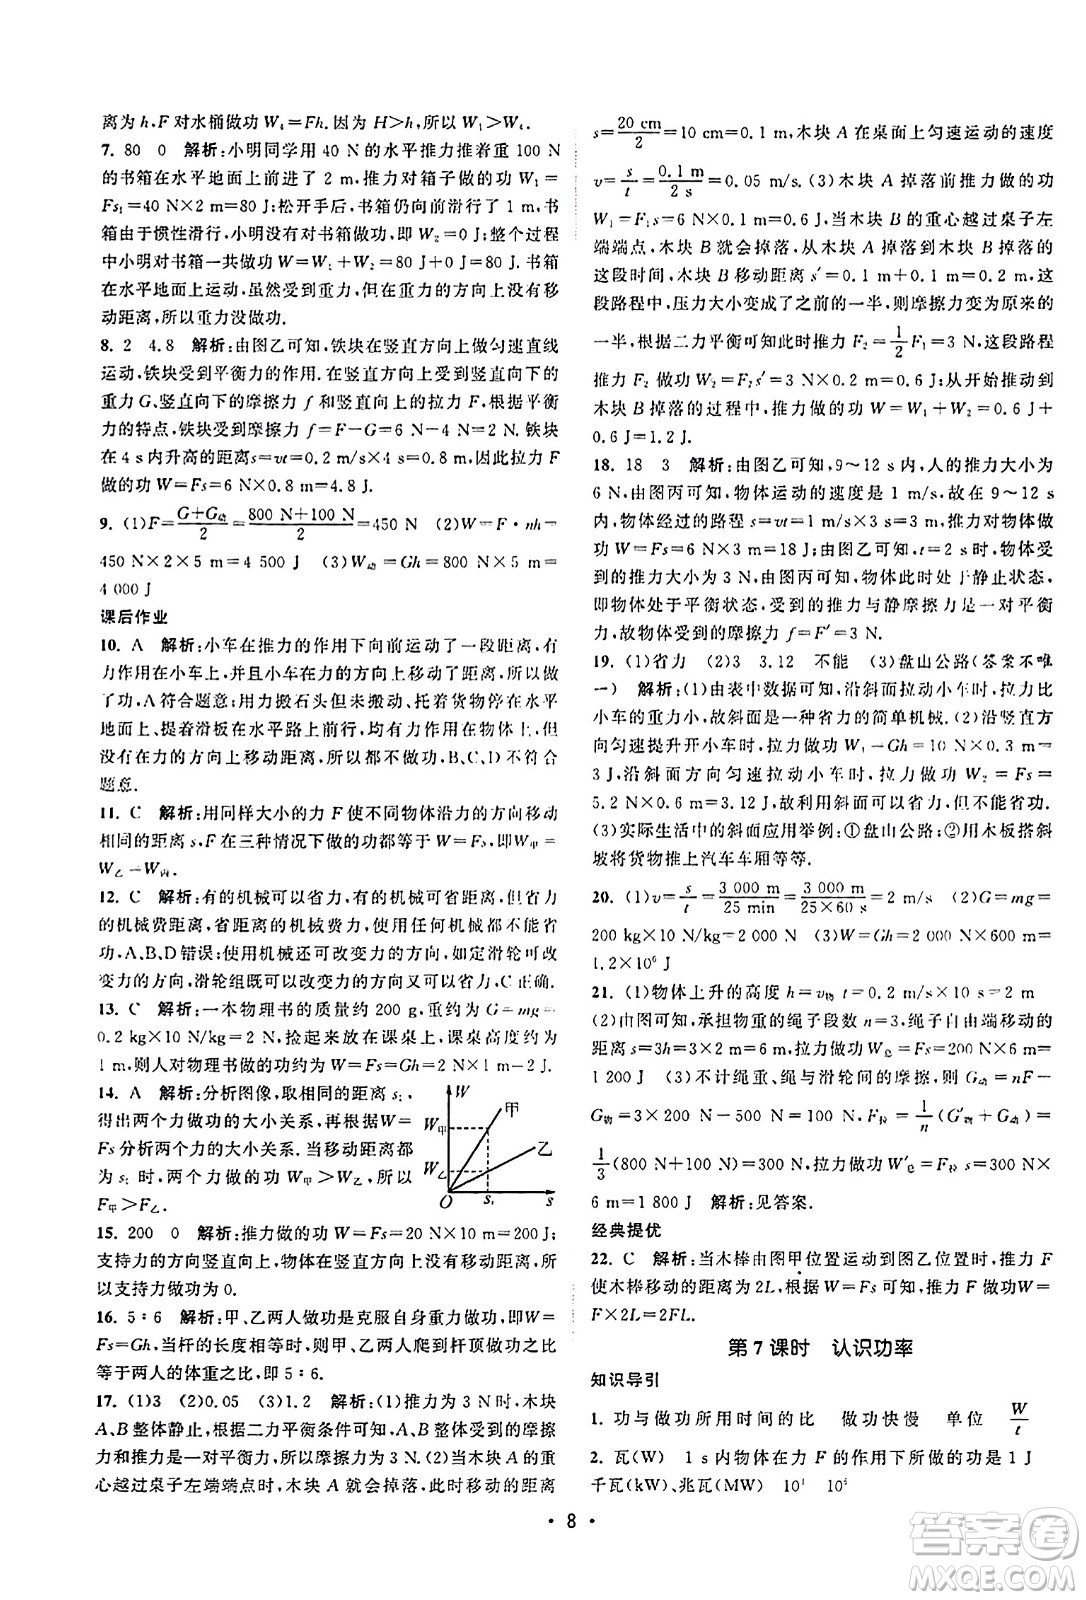 离为 h,F 对水桶做功 W₄=Fh. 因为 H>h,所以 W₁>W₄.
7. 80 0 解析:小明同学用 40 N 的水平推力推着重 100 N
的书箱在水平地面上前进了 2 m,推力对箱子做的功 W₁=
Fs₁=40 N×2 m=80 J;松开手后,书箱仍向前滑行了 1 m,书
箱由于惯性滑行,小明对书箱不做功,即 W₂=0 J;整个过程
中小明对书箱一共做功 W=W₁+W₂=80 J+0 J=80 J. 书箱
在水平地面上运动,虽然受到重力,但没有在重力的方向上移
动距离,所以重力没做功.
8. 2 4.8 解析:由图乙可知,铁块在竖直方向上做匀速直线
运动,铁块受到平衡力的作用. 在竖直方向上受到竖直向下的
重力 G、竖直向下的摩擦力 f 和竖直向上的拉力 F,根据平衡
力的特点,铁块受到摩擦力 f=F-G=6 N-4 N=2 N. 铁块
在 4 s 内升高的距离s=vt=0.2 m/s×4 s=0.8 m. 因此拉力 F
做的功 W=Fs=6 N×0.8 m=4.8 J.
9. (1)F=(G+G动)/2=(800 N+100 N)/2=450 N (2)W=F·nh=
450 N×2×5 m=4 500 J (3)W动=Gh=800 N×5 m=
4 000 J
课后作业
10. A 解析:小车在推力的作用下向前运动了一段距离,有
力作用在小车上,并且小车在力的方向上移动了距离,所以做
了功,A 符合题意;用力搬石头但未搬动、托着货物停在水平
地面上、提着滑板在水平路上前行,均有力作用在物体上,但
没有在力的方向上移动距离,所以都没有做功,B、C、D 不符合
题意.
11. C 解析:用同样大小的力 F 使不同物体沿力的方向移动
相同的距离 s,F 在三种情况下做的功都等于 Fs,即 W甲=
W乙=W丙.
12. C 解析:有的机械可以省力,有的机械可以省距离,省力
的机械费距离,省距离的机械费力,但使用任何机械都不省
功,A、B、D 错误;使用机械还可改变力的方向,如定滑轮可改
变力的方向,滑轮组既可以改变力的方向又可以省力,C 正确.
13. C 解析:一本物理书的质量约为 200 g,重约为 G=mg=
0.2 kg×10 N/kg=2 N;捡起来放回课桌上,课桌高度约为
1 m,则人对物理书做的功约为 W=Fs=Gh=2 N×1 m=2 J.
14. A 解析:分析图像,取相同的距离 s₁,
得出两个力做功的大小关系,再根据 W=
Fs 分析两个力的大小关系. 当移动距离都
为 s₁ 时,两个力做功的大小关系为 W甲>W乙,所以
F甲>F乙.
W
甲
W甲
乙
W乙
O s₁ s
15. 200 0 解析:推力做的功 W=Fs=20 N×10 m=200 J;
支持力的方向竖直向上,物体在竖直方向上没有移动距离,所
以支持力做功为 0.
16. 5∶6 解析:甲、乙两人做功是克服自身重力做功,由W=
Fs=Gh,当杆的长度相等时,则甲、乙两人爬到杆顶做功之比
等于两人的体重之比,即 5∶6.
17. (1)3 (2)0.05 (3)1.2 解析:(1)推力为 3 N时,木块
A、B 整体静止,根据二力平衡条件可知,整体受到的摩擦
力和推力为一对平衡力,所以摩擦力为 3 N. (2)当木块 A 的重
心越过桌子左端端点时,木块 A 就会掉落,运动的距离
s=20 cm/2=10 cm=0.1 m,木块 A 在桌面上匀速运动的速度
v=s/t=0.1 m/2 s=0.05 m/s. (3)木块 A 掉落前推力做的功
W₁=F₁s=6 N×0.1 m=0.6 J,当木块 B 的重心越过桌子左
端端点,木块 B 就会掉落,从木块 A 掉落到木块 B 掉落的
这段时间,木块 B 移动距离 s′=0.1 m+0.1 m=0.2 m,在这
段路程中,压力大小变成了之前的一半,则摩擦力变为原来的
一半,根据二力平衡可知此时推力 F₂=1/2F₁=3 N,这段路程
推力 F₂ 做功 W₂=F₂s′=3 N×0.2 m=0.6 J,从开始推动到
木块 B 掉落的过程中,推力做的功 W=W₁+W₂=0.6 J+
0.6 J=1.2 J.
18. 18 3 解析:由图乙可知,9～12 s内,人的推力大小为
6 N,由图丙可知,物体运动的速度是 1 m/s,故在 9～12 s
内,物体经过的路程 s=vt=1 m/s×3 s=3 m,推力对物体做
功 W=Fs=6 N×3 m=18 J;由图乙可知,t=2 s时,物体受到
的推力大小为 3 N,由图丙可知,物体此时处于静止状态,
即物体处于平衡状态,受到的推力与静摩擦力是一对平衡
力,故受到的摩擦力 f=F′=3 N.
19. (1)省力 (2)3 3.12 不能 (3)盘山公路(答案不唯
一) 解析:(1)由表中数据可知,沿斜面拉动小车时,拉力比
小车的重力小,故斜面是一种省力的简单机械. (2)沿竖直方
向匀速提升小车时,拉力做功 W₁=Gh=10 N×0.3 m=
3 J,沿斜面方向匀速拉动小车时,拉力做功 W₂=Fs=
5.2 N×0.6 m=3.12 J,故利用斜面可以省力,但不能省功.
(3)实际生活中的斜面应用举例:①盘山公路;②用木板搭斜
坡将货物推上汽车车厢等等.
20. (1)v=s/t=3 000 m/25 min=3 000 m/(25×60 s)=2 m/s (2)G=mg=
200 kg×10 N/kg=2 000 N (3)W=Gh=2 000 N×600 m=
1.2×10⁶ J
21. (1)物体上升的高度 h=v物 t=0.2 m/s×10 s=2 m
(2)由图可知,承担物重的绳子段数 n=3,绳子自由端移动的
距离 s=3h=3×2 m=6 m,拉力做功 W总=Fs=200 N×
6 m=1 200 J (3)不计绳重、绳与滑轮间的摩擦,则 G动=nF-
G物=3×200 N-500 N=100 N, F拉=1/n(G′物+G动)=
1/3(800 N+100 N)=300 N,拉力做功 W′总=F拉s=300 N×
6 m=1 800 J 解析:见答案.
经典提优
22. C 解析:当木棒由图甲位置运动到图乙位置时,推力 F
使木棒移动的距离为 2L,根据 W=Fs 可知,推力 F 做功W=
F×2L=2FL.
第 7 课时 认识功率
知识导引
1. 功与做功所用时间的比 做功快慢 单位 W/t
2. 瓦(W) 1 s内物体在力 F 的作用下所做的功为 1 J
千瓦(kW)、兆瓦(MW)
· 8 ·
答案圈
MXQE.COM